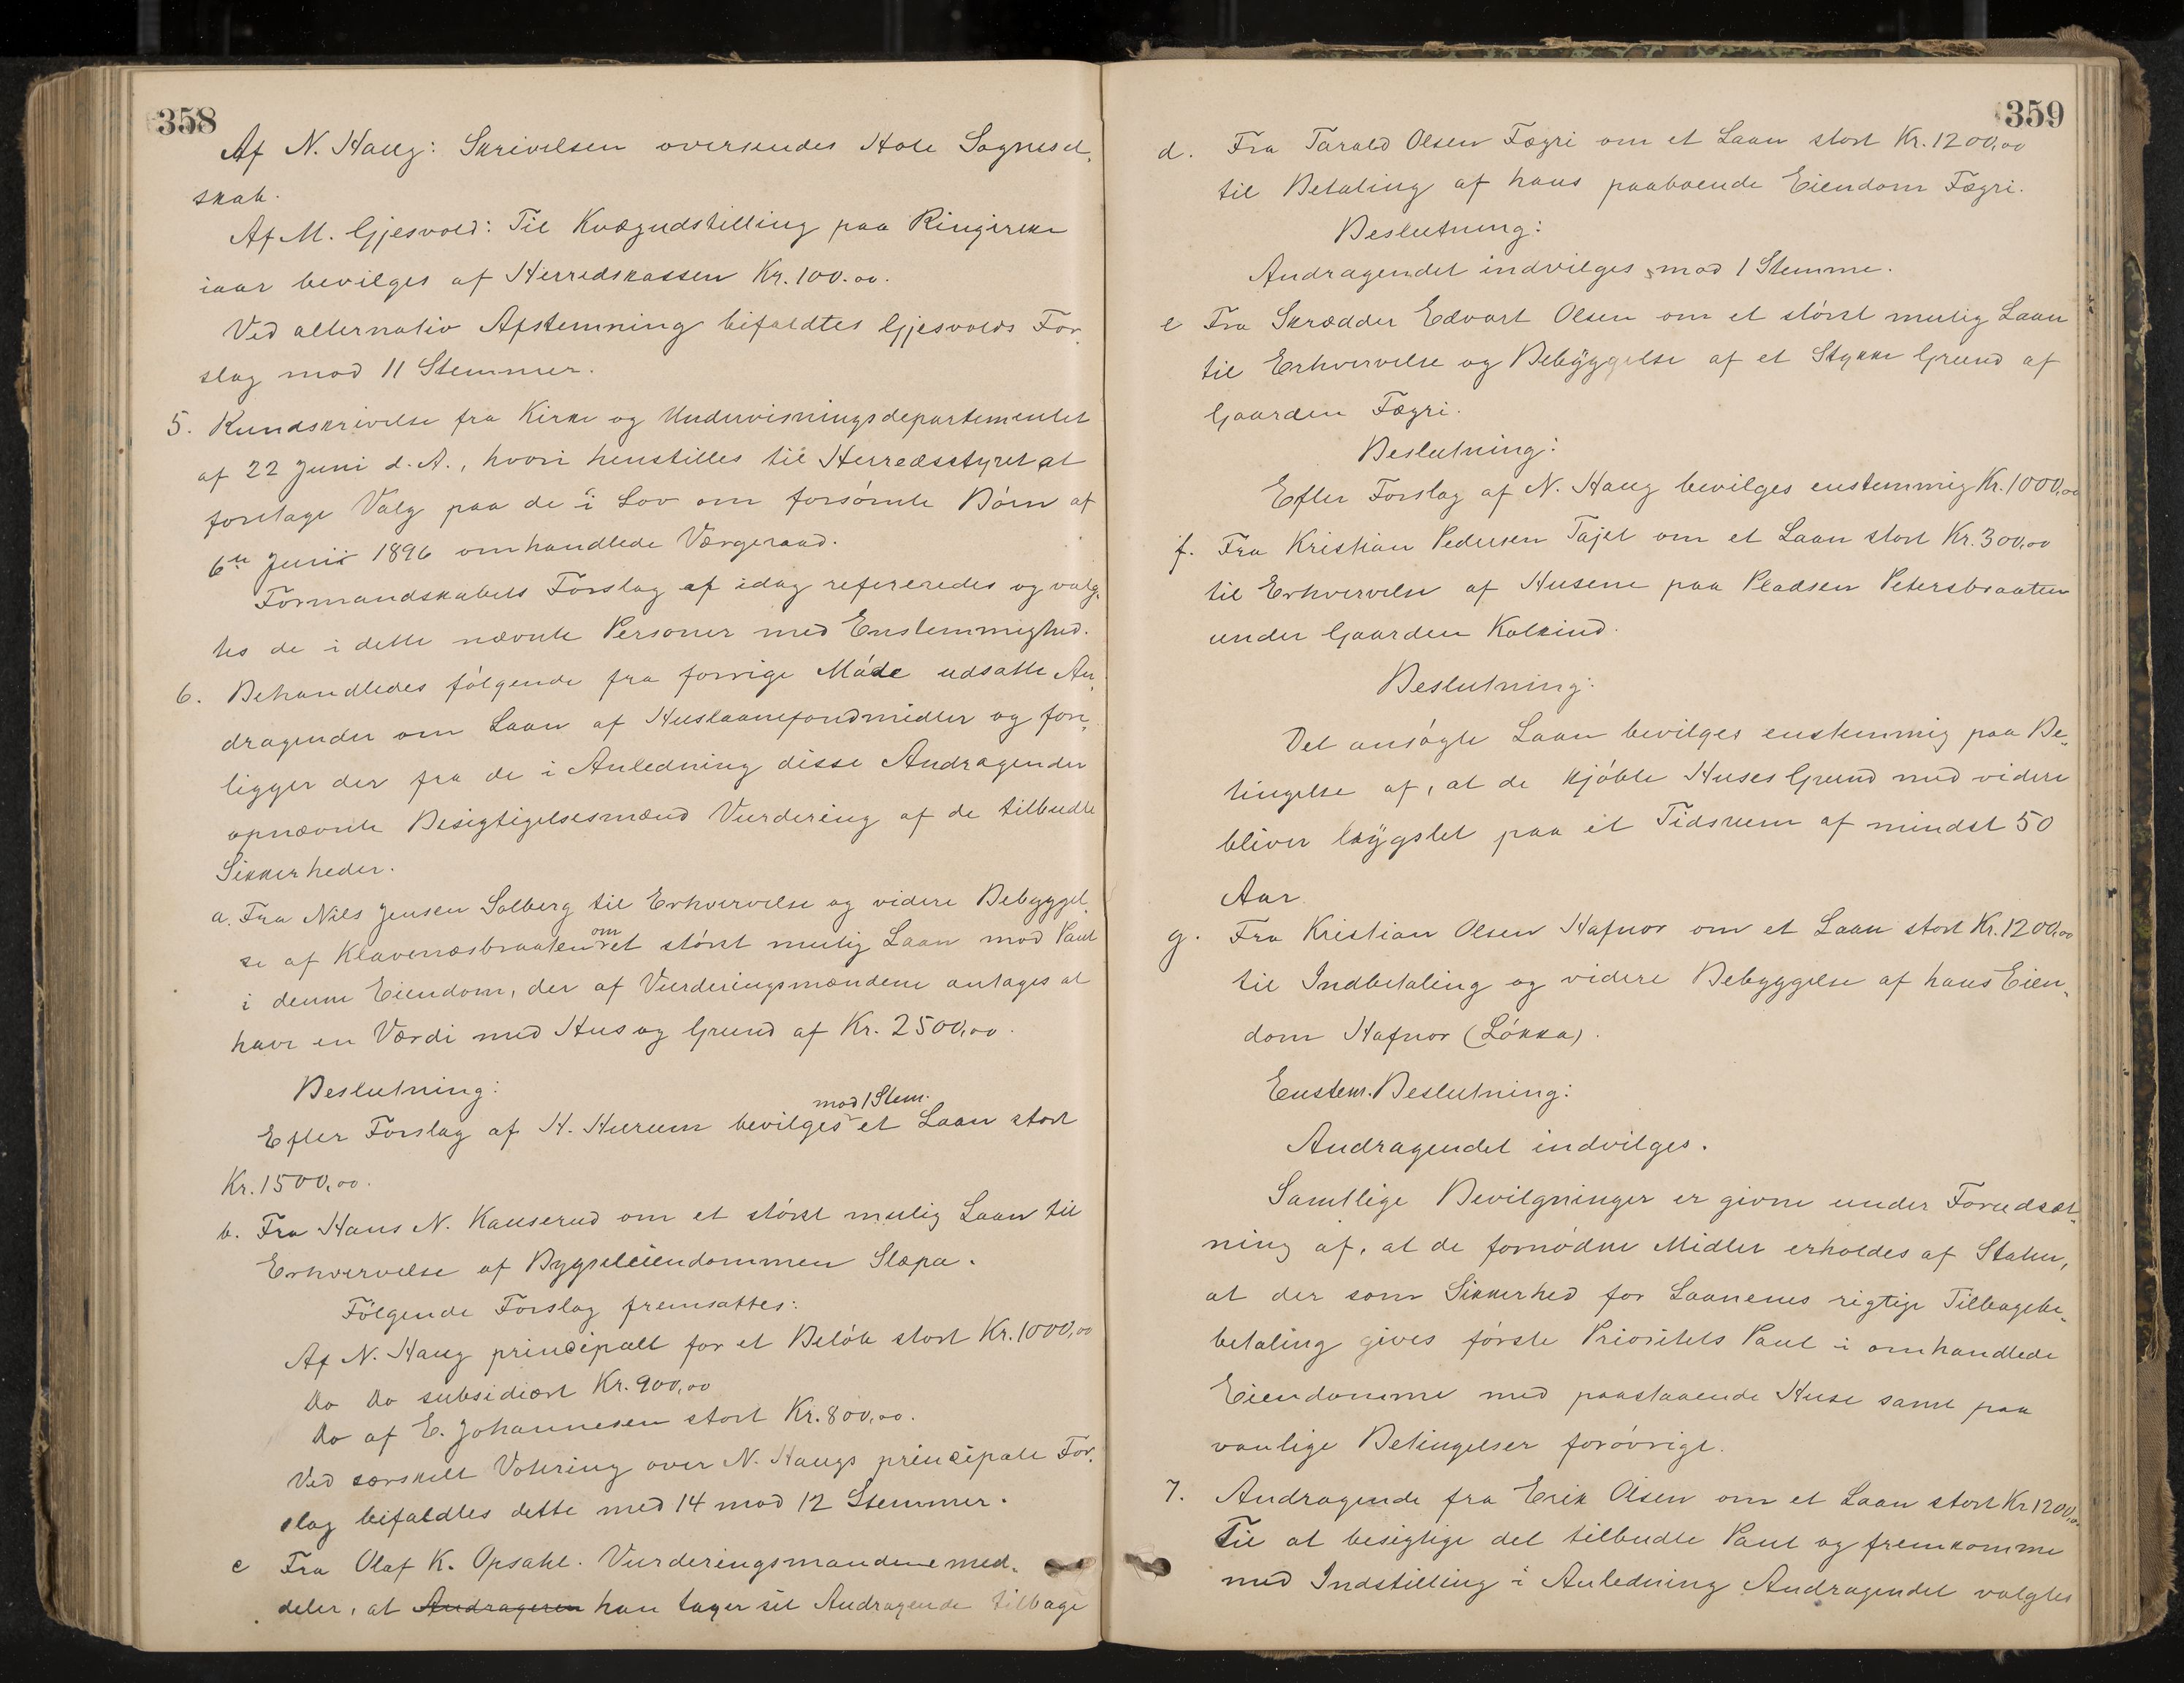 358
Af N. Haug: Skrivelsen oversendes Hole Sognesel„
skab.
Af M. Gjesvold: Til Kvægudstilling paa Ringirike
iaar bevilges af Herredskassen Kr. 100.00.
Ved alternativ Afstemning bifaldtes Gjesvolds For„
slag mod 11 Stemmer.
5. Rundskrivelse fra Kirke og Undervisningsdepartementet
af 22 Juni d. A., hvori henstilles til Herredsstyret at
foretage Valg paa de i Lov om forsømte Børn af
6te Juni 1896 omhandlede Værgeraad.
Formandskabets Forslag af idag refereredes og valg„
tes de i dette nævnte Personer med Enstemmighed.
6. Behandledes følgende fra forrige Møde udsatte An„
dragender om Laan af Huslaanefondmidler og fore„
ligger der fra de i Anledning disse Andragender
opnævnte Besigtigelsesmænd Vurdering af de tilbudte
Sikkerheder.
a. Fra Nils Jensen Solberg til Erhvervelse og videre Bebyggel„
se af Klavenæsbraaten om et størst mulig Laan mod Pant
i denne Eiendom, der af Vurderingsmændene antages at
have en Værdi med Hus og Grund af Kr. 2500,00.
Beslutning:
Efter Forslag af H. Hurum bevilges mod 1 Stem. et Laan stort
Kr. 1500,00.
b. Fra Hans N. Kauserud om et størst mulig Laan til
Erhvervelse af Bygseleiendommen Slæpa.
Følgende Forslag fremsattes:
Af N. Haug principalt for et Beløb stort Kr. 1000,00
Do Do subsidiært Kr. 900,00
Do af E. Johannesen stort Kr. 800,00.
Ved særskilt Votering over N. Haugs principale For„
slag bifaldtes dette med 14 mod 12 Stemmer.
c Fra Olaf K. Opsahl. Vurderingsmændene med„
deler, at Andrageren han tager sit Andragende tilbage
359
d. Fra Tarald Olsen Fægri om et Laan stort Kr. 1200,00
til Betaling af hans paaboende Eiendom Fægri.
Beslutning:
Andragendet indvilges mod 1 Stemme.
e Fra Skrædder Edvart Olsen om et størst mulig Laan
til Erhvervelse og Bebyggelse af et Stykke Grund af
Gaarden Fægri.
Beslutning:
Efter Forslag af N. Haug bevilges enstemmig Kr. 1000,00
f. Fra Kristian Pedersen Tajet om et Laan stort Kr. 300,00
til Erhvervelse af Husene paa Pladsen Petersbraaten
under Gaarden Kolkind.
Beslutning:
Det ansøgte Laan bevilges enstemmig paa Be„
tingelse af, at de kjøbte Huses Grund med videre
bliver bygslet paa et Tidsrum af mindst 50
Aar.
g. Fra Kristian Olsen Hafnor om et Laan stort Kr. 1200,00
til Indbetaling og videre Bebyggelse af hans Eien„
dom Hafnor (Løkka).
Enstem. Beslutning:
Andragendet indvilges.
Samtlige Bevilgninger er givne under Forudsæt„
ning af, at de fornødne Midler erholdes af Staten,
at der som Sikkerhed for Laanenes rigtige Tilbage„
betaling gives første Prioritets Pant i omhandlede
Eiendomme med paastaaende Huse samt paa
vanlige Betingelser forøvrigt.
7. Andragende fra Erik Olsen om et Laan stort Kr 1200,00
Til at besigtige det tilbudte Pant og fremkomme
med Indstilling i Anledning Andragendet valgtes